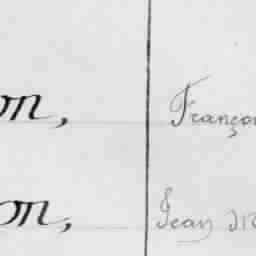 on, Franço
on, Jean